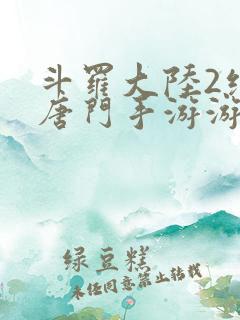 斗羅大陸2絕
唐門手游游
綠豆糕
未經同意禁止轉載